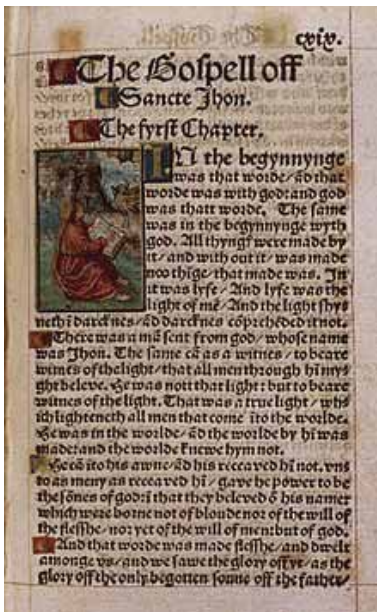 cxix.
The Gospell off
Sancte Jhon.
The fyrst Chapter.
IN the begynnynge
was that worde/ ād that
worde was with god: and god
was thatt worde. The same
was in the begynnynge wyth
god. All thyngs were made by
it/ and with out it/ was made
noo thīge/ that made was. In
it was lyfe/ And lyfe was the
light of mē/ And the light shyneth
ī darcknes/ ād darcknes cōprehēded it not.
There was a mā sent from god/ whose name
was Jhon. The same cā as a witnes/ to beare
witnes of the light/ that all men through hī myght
beleve. He was nott that light: but to beare
witnes of the light. That was a true light/ which
lighteneth all men that come īto the worlde.
He was in the worlde/ ād the worlde by hī was
made: and the worlde knewe hym not.
He cā īto his awne/ ād his receaved hī not. vnto
as meny as receaved hī/ gave he power to be
the sōnes of god: ī that they beleved ō his name:
which were borne not of bloude nor of the will of
the flesshe/ nor yet of the will of men: but of god.
And that worde was made flesshe/ and dwelt
amonge vs/ and we sawe the glory off yt/ as the
glory off the only begotten sonne off the father/